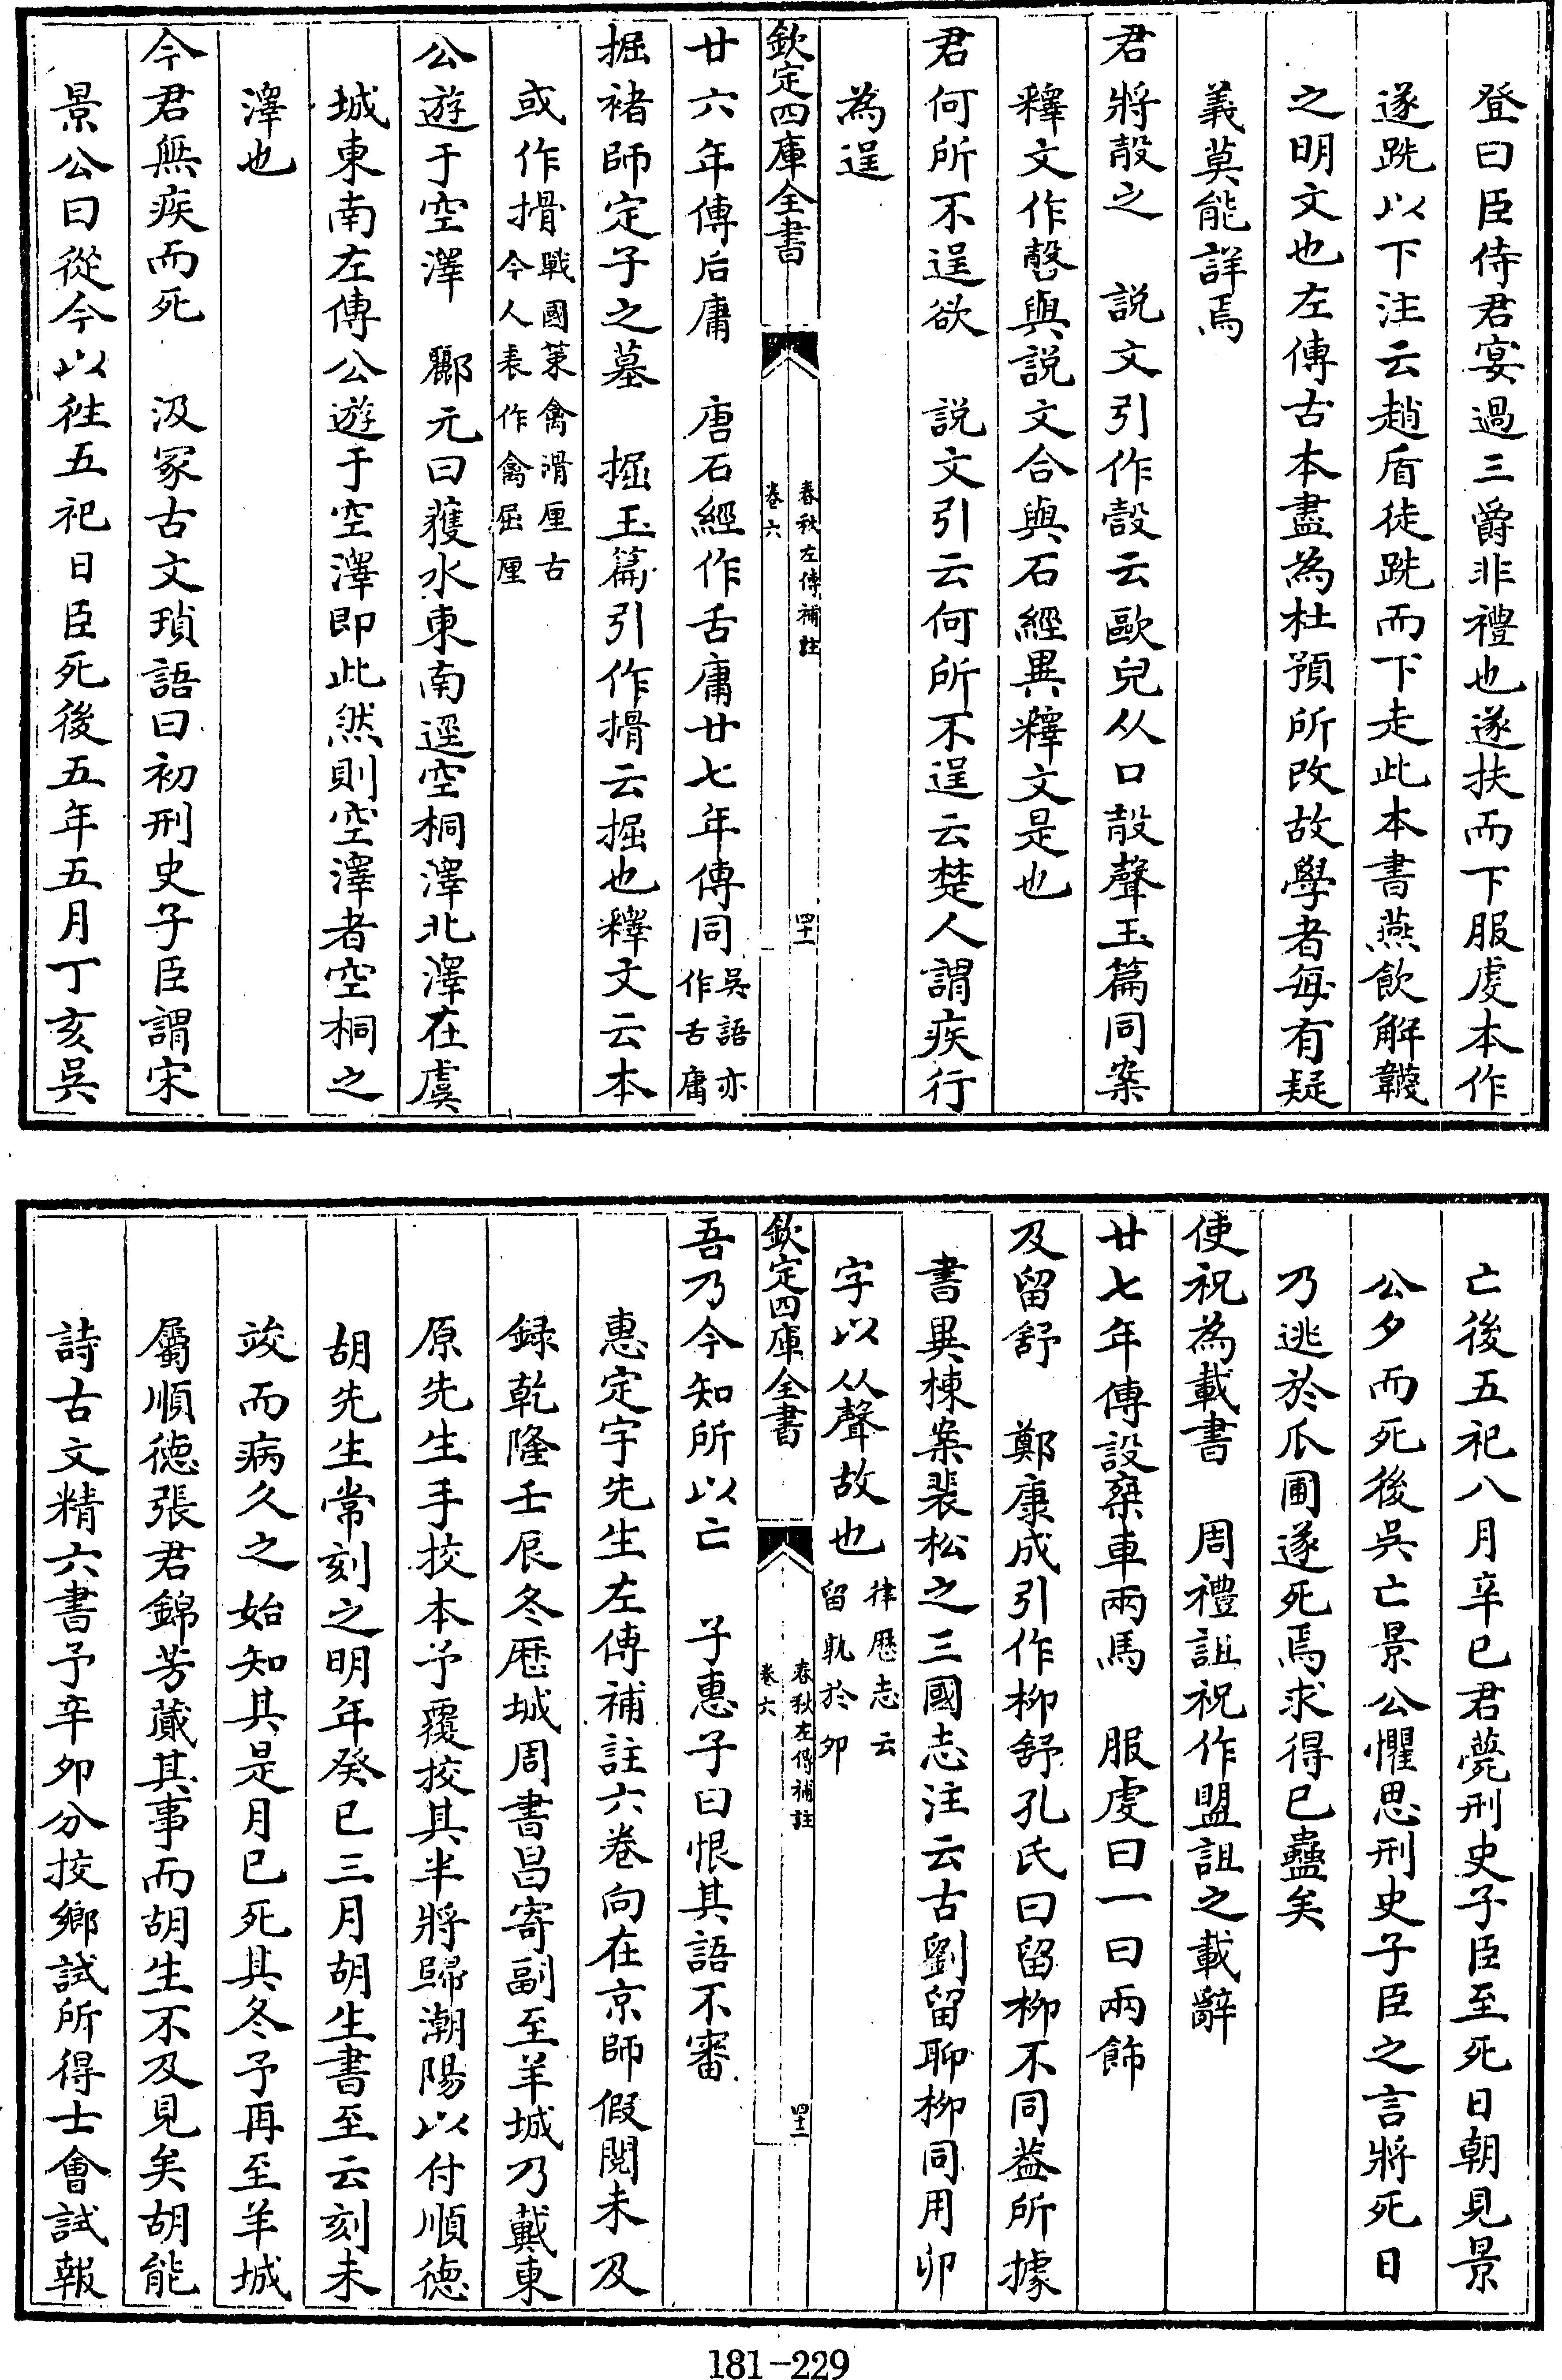 登曰臣侍君宴過三爵非禮也遂扶而下服虔本作
遂跣以下注云趙盾徒跣而下走此本書燕飲解韈
之明文也左傳古本盡為杜預所改故學者每有疑
義莫能詳焉
君將㱿之　説文引作㱿云歐皃从口㱿聲玉篇同案
釋文作㱿與説文合與石經異釋文是也
君何所不逞欲　説文引云何所不逞云楚人謂疾行
為逞
欽定四庫全書
春秋左傳補註
卷六
四十一
廿六年傳后庸　唐石經作舌庸廿七年傳同吳語亦
作舌庸
掘褚師定子之墓　掘玉篇引作搰云掘也釋文云本
或作搰戰國策禽滑厘古
今人表作禽屈厘
公遊于空澤　酈元曰䕶水東南逕空桐澤北澤在虞
城東南左傳公遊于空澤即此然則空澤者空桐之
澤也
今君無疾而死　汲冢古文瑣語曰初刑史子臣謂宋
景公曰從今以往五祀日臣死後五年五月丁亥吳
亡後五祀八月辛巳君薨刑史子臣至死日朝見景
公夕而死後吳亡景公懼思刑史子臣之言將死日
乃逃於爪圃遂死焉求得已蠱矣
使祝為載書　周禮詛祝作盟詛之載辭
廿七年傳設桒車兩馬　服虔曰一曰兩飾
及留舒　鄭康成引作柳舒孔氏曰留柳不同葢所據
書異棟案裴松之三國志注云古劉留聊柳同用丣
字以从聲故也律厯志云
留孰於丣
欽定四庫全書
春秋左傳補註
卷六
四十二
吾乃今知所以亡　子惠子曰恨其語不審
惠定宇先生左傳補註六卷向在京師假閲未及
録乾隆壬辰冬厯城周書昌寄副至羊城乃戴東
原先生手挍本予覆挍其半將歸潮陽以付順德
胡先生常刻之明年癸巳三月胡生書至云刻未
竣而病久之始知其是月已死其冬予再至羊城
屬順德張君錦芳蕆其事而胡生不及見矣胡能
詩古文精六書予辛卯分挍鄉試所得士會試報
181-229